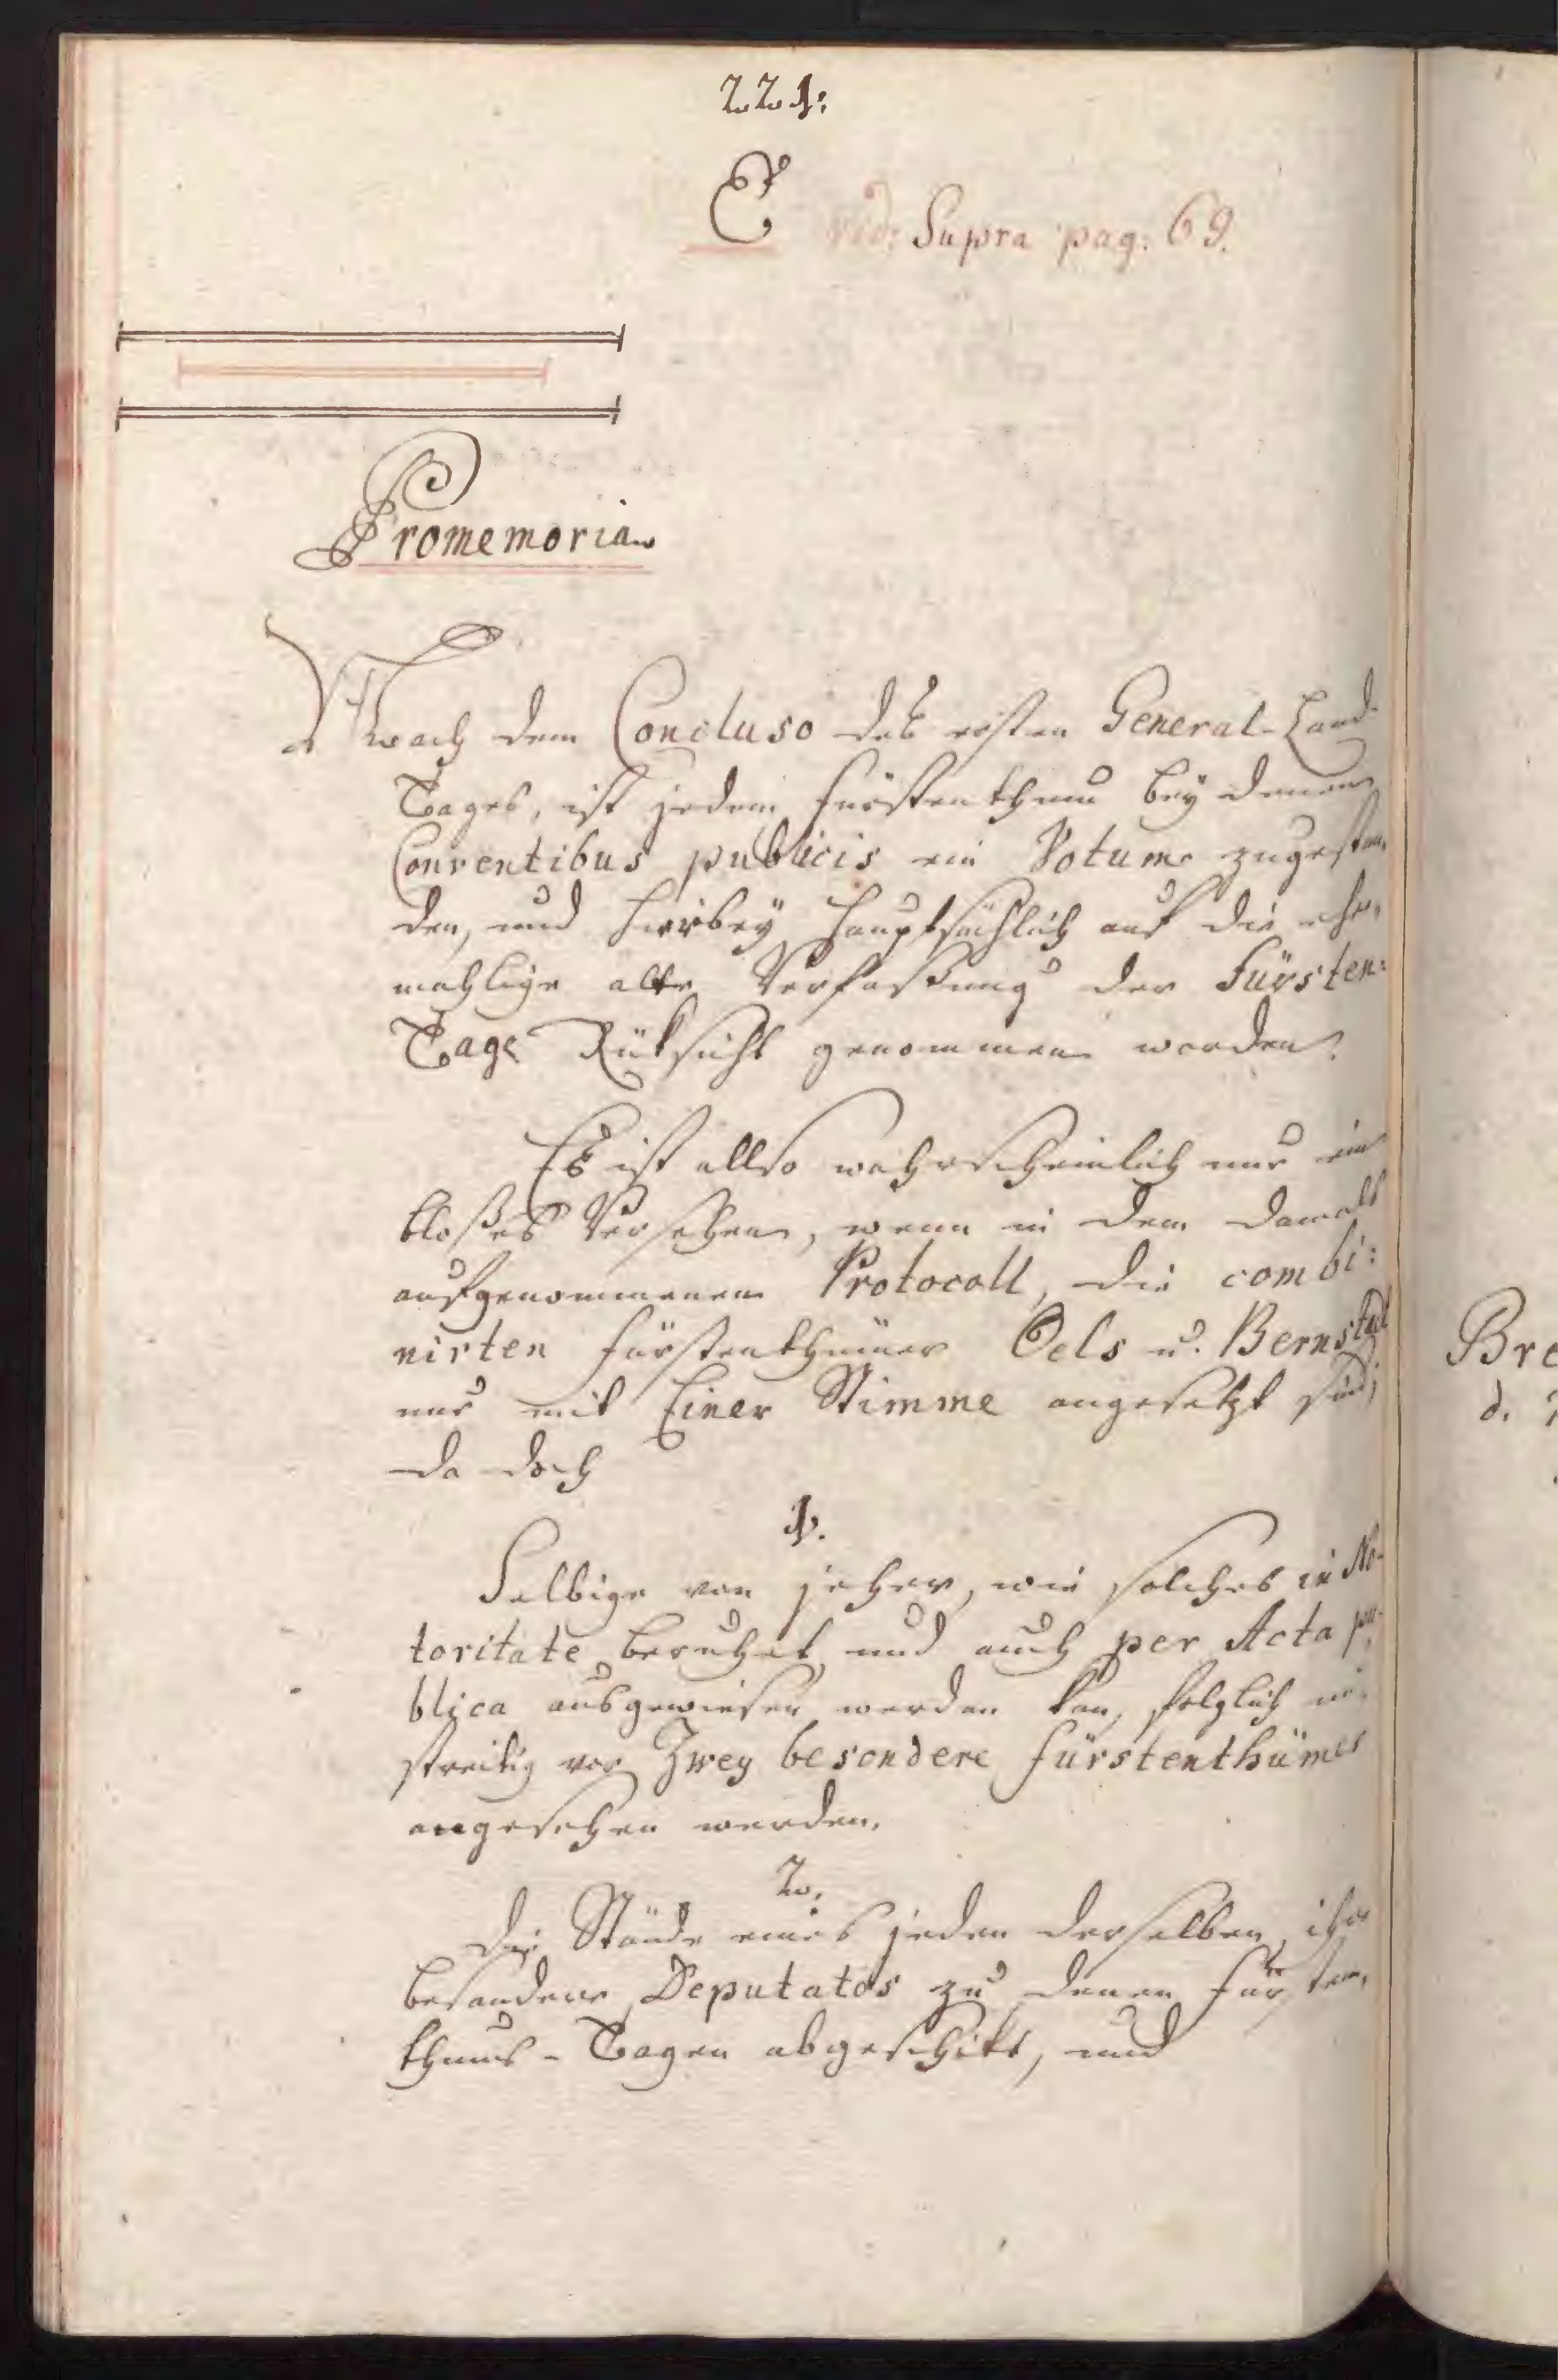 221.
E vid: Supra pag: 69.
Promemoria
Nach dem Concluso des ersten General-Land-
Tages, ist jedem Fürstenthum bey denen
Conventibus publicis ein Votum zugestan-
den, und hierbey hauptsächlich auf die ehe-
mahlige alte Verfaßung der Fürsten:
Tage Rüksicht genommen worden.
Es ist allso wahrscheinlich nur ein
bloßes Versehen, wenn in dem damals
aufgenommenen Protocoll, die combi:
nirten Fürstenthümer Oels u. Bernstadt
nur mit Einer Stimme angesetzt sind;
da doch
1.
Selbige von jeher, wie solches in No-
toritate beruhet, und auch per Acta pu-
blica ausgewiesen werden kan, folglich un-
streitig vor Zwey besondere Fürstenthümer
angesehen werden.
2.
Die Stände eines jeden derselben, ihre
besondere Deputatos zu denen Fürsten-
thums-Tagen abgeschikt, und
Bre
d.